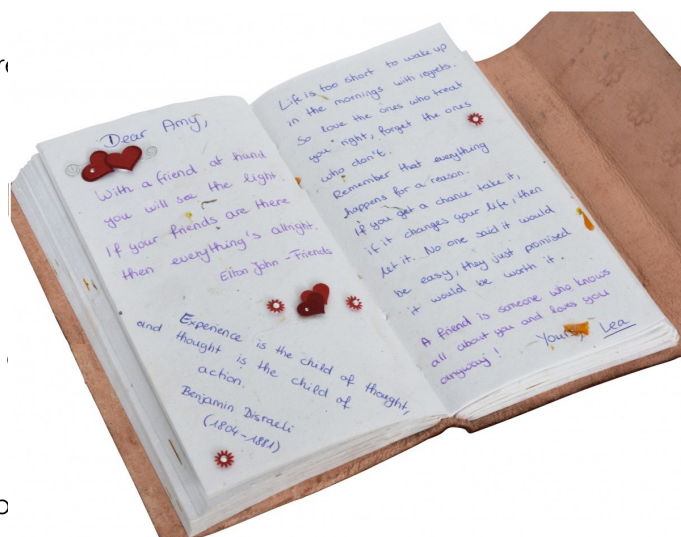 Dear Amy,
With a friend at hand
you will see the light
If your friends are there
then everything's allright.
Elton John - Friends
Experience is the child of thought,
and thought is the child of
action.
Benjamin Disraeli
(1804-1881)
Life is too short to wake up
in the mornings with regrets.
So love the ones who treat
you right, forget the ones
who don't.
Remember that everything
happens for a reason.
If you get a chance take it,
if it changes your life, then
let it. No one said it would
be easy, they just promised
it would be worth it.
A friend is someone who knows
all about you and loves you
anyway!
Lea